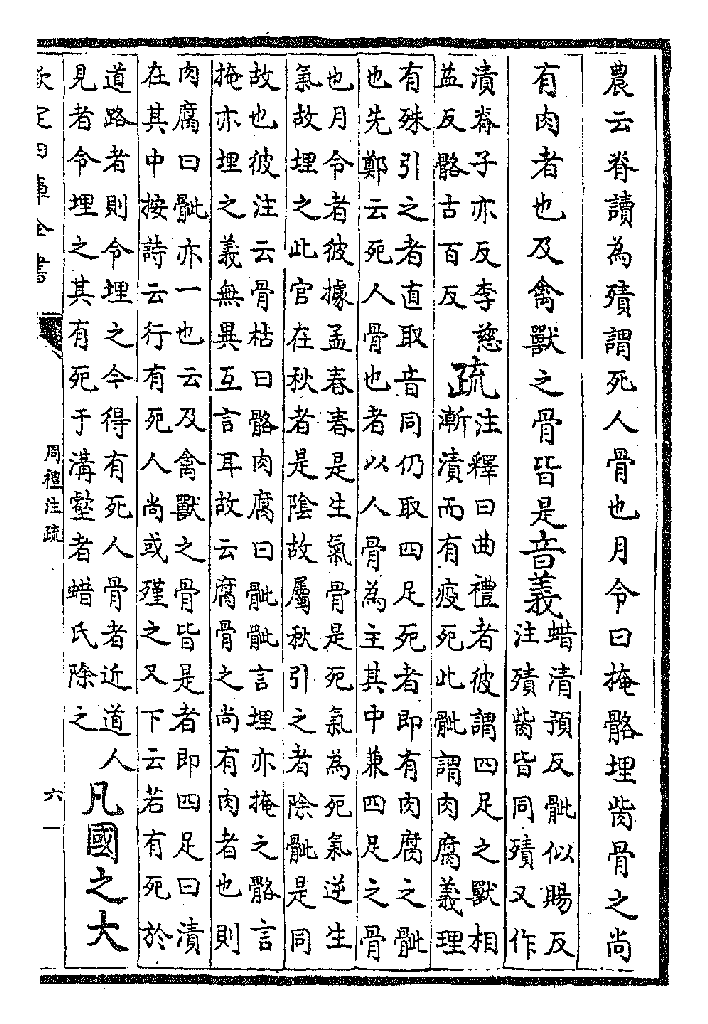 農云脊讀為㱴謂死人骨也月令曰掩骼埋胔骨之尚
有肉者也及禽獸之骨皆是音義
蜡清預反骴似賜反
注㱴胔皆同㱴又作
漬脊子亦反李慈
益反骼古百反
疏
注釋曰曲禮者彼謂四足之獸相
漸漬而有疫死此骴謂肉腐義理
有殊引之者直取音同仍取四足死者即有肉腐之骴
也先鄭云死人骨也者以人骨為主其中兼四足之骨
也月令者彼據孟春春是生氣骨是死氣為死氣逆生
氣故埋之此官在秋者是陰故屬秋引之者除骴是同
故也彼注云骨枯曰骼肉腐曰骴骴言埋亦掩之骼言
掩亦埋之義無異互言耳故云腐骨之尚有肉者也則
肉腐曰骴亦一也云及禽獸之骨皆是者即四足曰漬
在其中按詩云行有死人尚或殣之又下云若有死於
道路者則令埋之今得有死人骨者近道人
見者令埋之其有死于溝壑者蜡氏除之
凡國之大
欽定四庫全書
周禮注疏
六